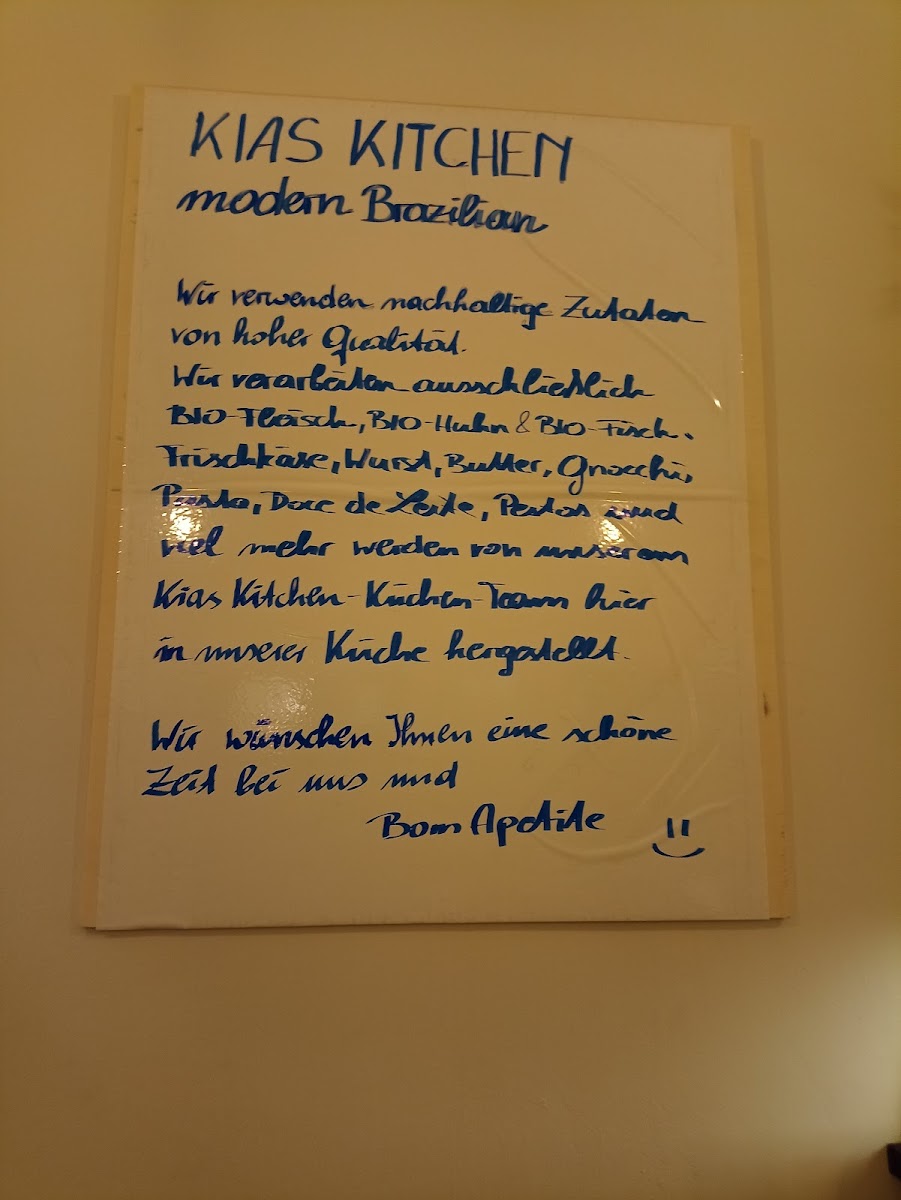 KIAS KITCHEN
modern Brazilian
Wir verwenden nachhaltige Zutaten
von hoher Qualität.
Wir verarbeiten ausschließlich
BIO-Fleisch, BIO-Huhn & BIO-Fisch.
Frischkäse, Wurst, Butter, Gnocchi,
Pasta, Doce de Leite, Pestos und
viel mehr werden von unserem
Kias Kitchen-Küchen-Team hier
in unserer Küche hergestellt.
Wir wünschen Ihnen eine schöne
Zeit bei uns und
Bom Apetite